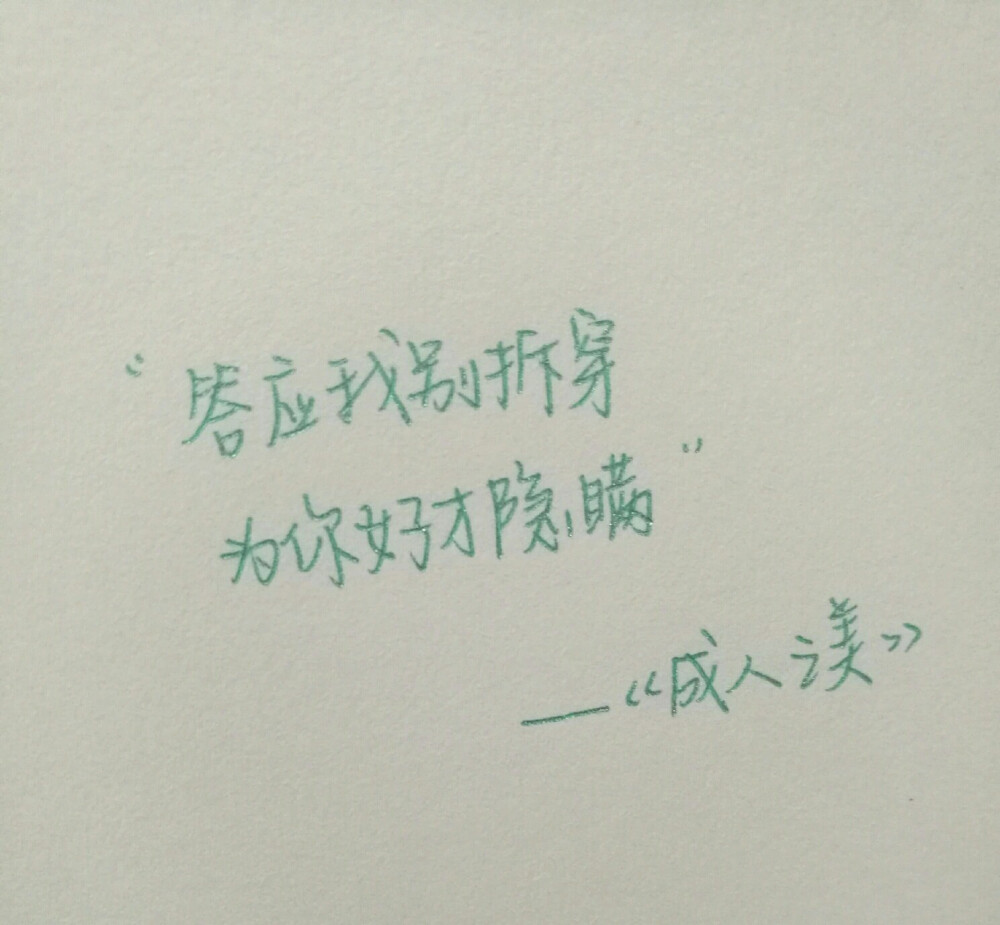 “答应我别拆穿
为你好才隐瞒”
——《成人之美》